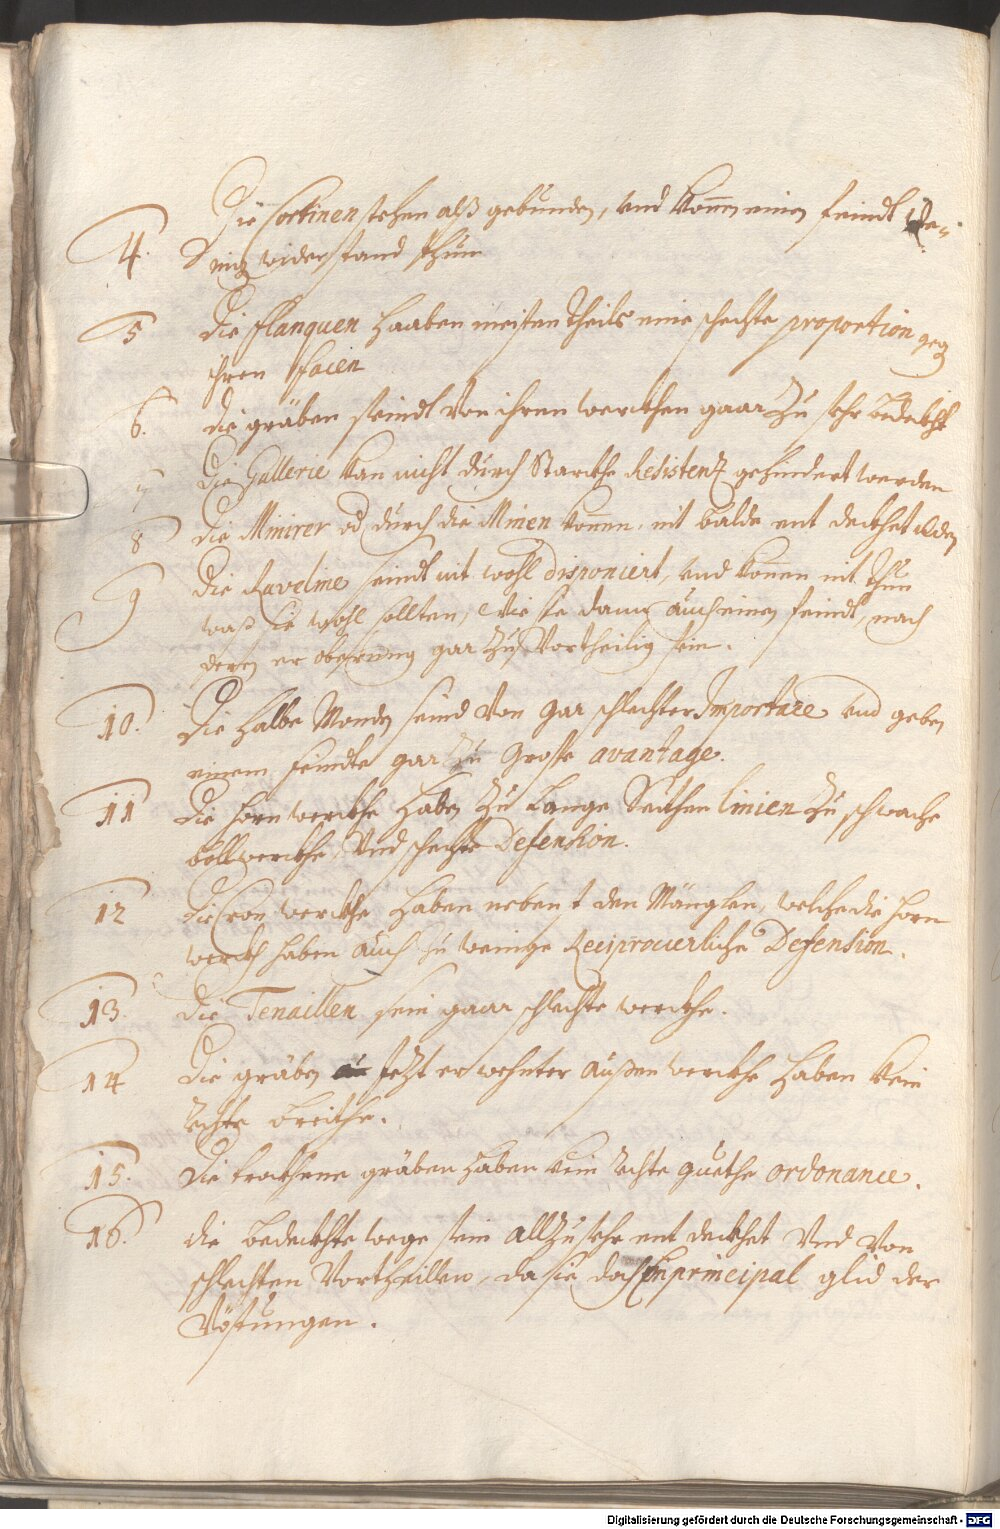 4. Die Cortinen stehen alß gebunden, und können einen feindt we-
nig widerstand thuen
5 Die flanquen haaben meisten theils eine schechte proportion geg
ihren facien
6. die gräben seindt von ihren werckhen gaar zu sehr bedeckht
7 Die Gallerie kan nicht durch starckhe Resistentz gehindert werden
8 die Minirer od durch die Minen können nit balde entdeckhet wden
9 Die Raveline seindt nit wohl disponiert, und können nit thun
waß sie wohl sollten, wie sie dann auch einen feindt, nach
deren eroberung gar zu vortheilig sein.
10. Die halbe Monden seind von gar schlechter Importanz und geben
einem feindte gar zu grosse avantage.
11 Die hornwerckhe haben zu lange seithen linien zu schwache
bollwerckhe, und schechte Defension.
12 die Cronwerckhe haben nebenst den Mänglen, welche die horn
werckh haben auch zu wenige Reciprocierliche Defension.
13. die Tenaillen sein gaar schlechte werckhe.
14 die gräben jetzt erwehnter außenwerckhe haben kein
rechte breithe.
15. die trockhene gräben haben kein rechte guethe ordonance.
16. die bedeckhte wege sein allzu sehr entdeckhet und von
schlechten vortheillen, da sie doch ein principal glid der
vöstungen.
Digitalisierung gefördert durch die Deutsche Forschungsgemeinschaft - DFG